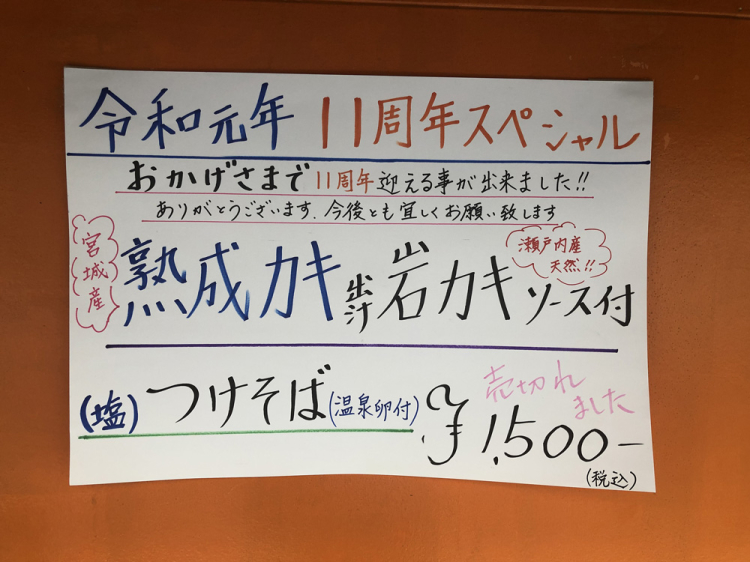 令和元年 11周年スペシャル
おかげさまで11周年迎える事が出来ました!!
ありがとうございます.今後とも宜しくお願い致します
宮城産
熟成カキ出汁岩カキソース付
瀬戸内産
天然!!
(塩)つけそば(温泉卵付)
¥1,500-
売切れ
ました
(税込)